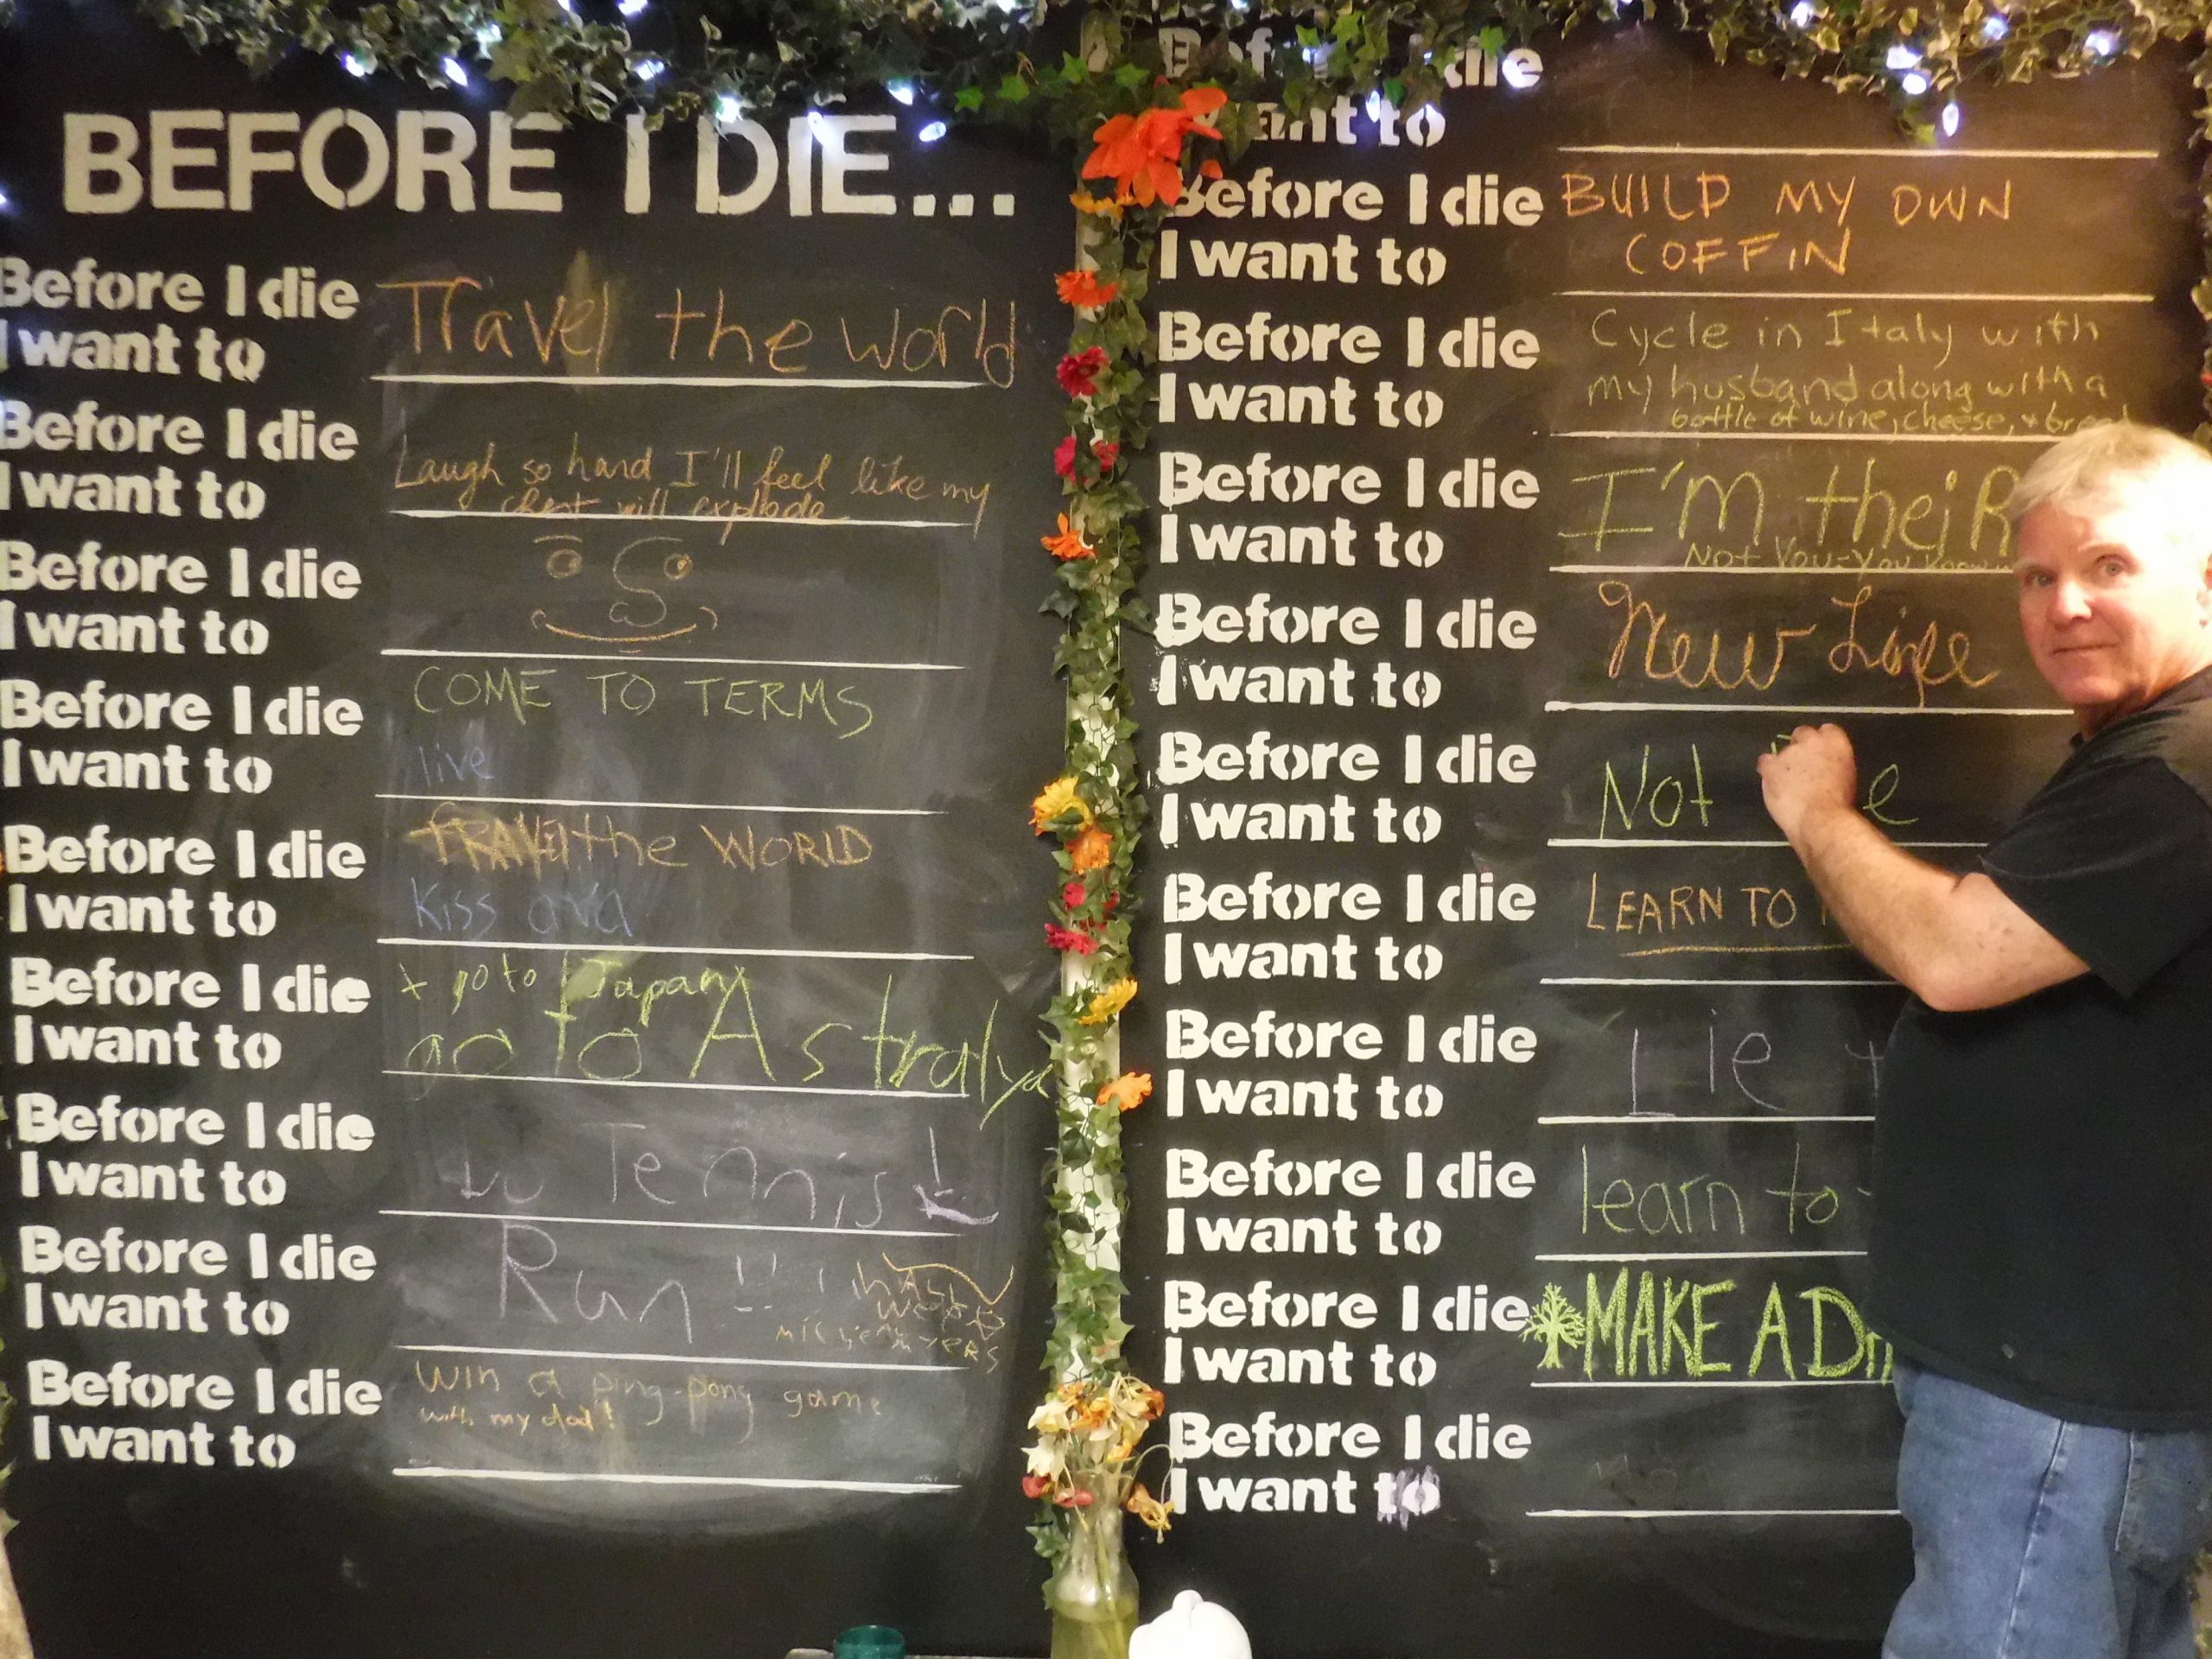 BEFORE I DIE...
Before I die
I want to
Travel the world
Before I die
I want to
Laugh so hard I'll feel like my
chest will explode
Before I die
I want to
Before I die
I want to
COME TO TERMS
live
Before I die
I want to
TRAVEl the WORLD
Kiss ava
Before I die
I want to
+ go to Japan
go to Astralya
Before I die
I want to
Tennis
Before I die
I want to
Run !!
Before I die
I want to
win a ping-pong game
with my dad!
Before I die
want to
Before I die
I want to
BUILD MY OWN
COFFIN
Before I die
I want to
Cycle in Italy with
my husband along with a
bottle of wine, cheese, +
Before I die
I want to
I'm theiR
Not You-You
Before I die
I want to
New Life
Before I die
I want to
Not
Before I die
I want to
LEARN TO
Before I die
I want to
Lie
Before I die
I want to
learn to
Before I die
I want to
MAKE A
Before I die
I want to